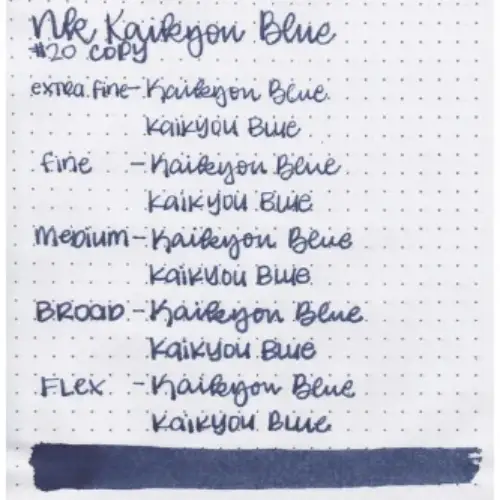 NK Kaikyou Blue
#20 COPY
extra fine - Kaikyou Blue
Kaikyou Blue
fine - Kaikyou Blue
Kaikyou Blue
Medium - Kaikyou Blue
Kaikyou Blue
BROAD - Kaikyou Blue
Kaikyou Blue
FLEX - Kaikyou Blue
Kaikyou Blue